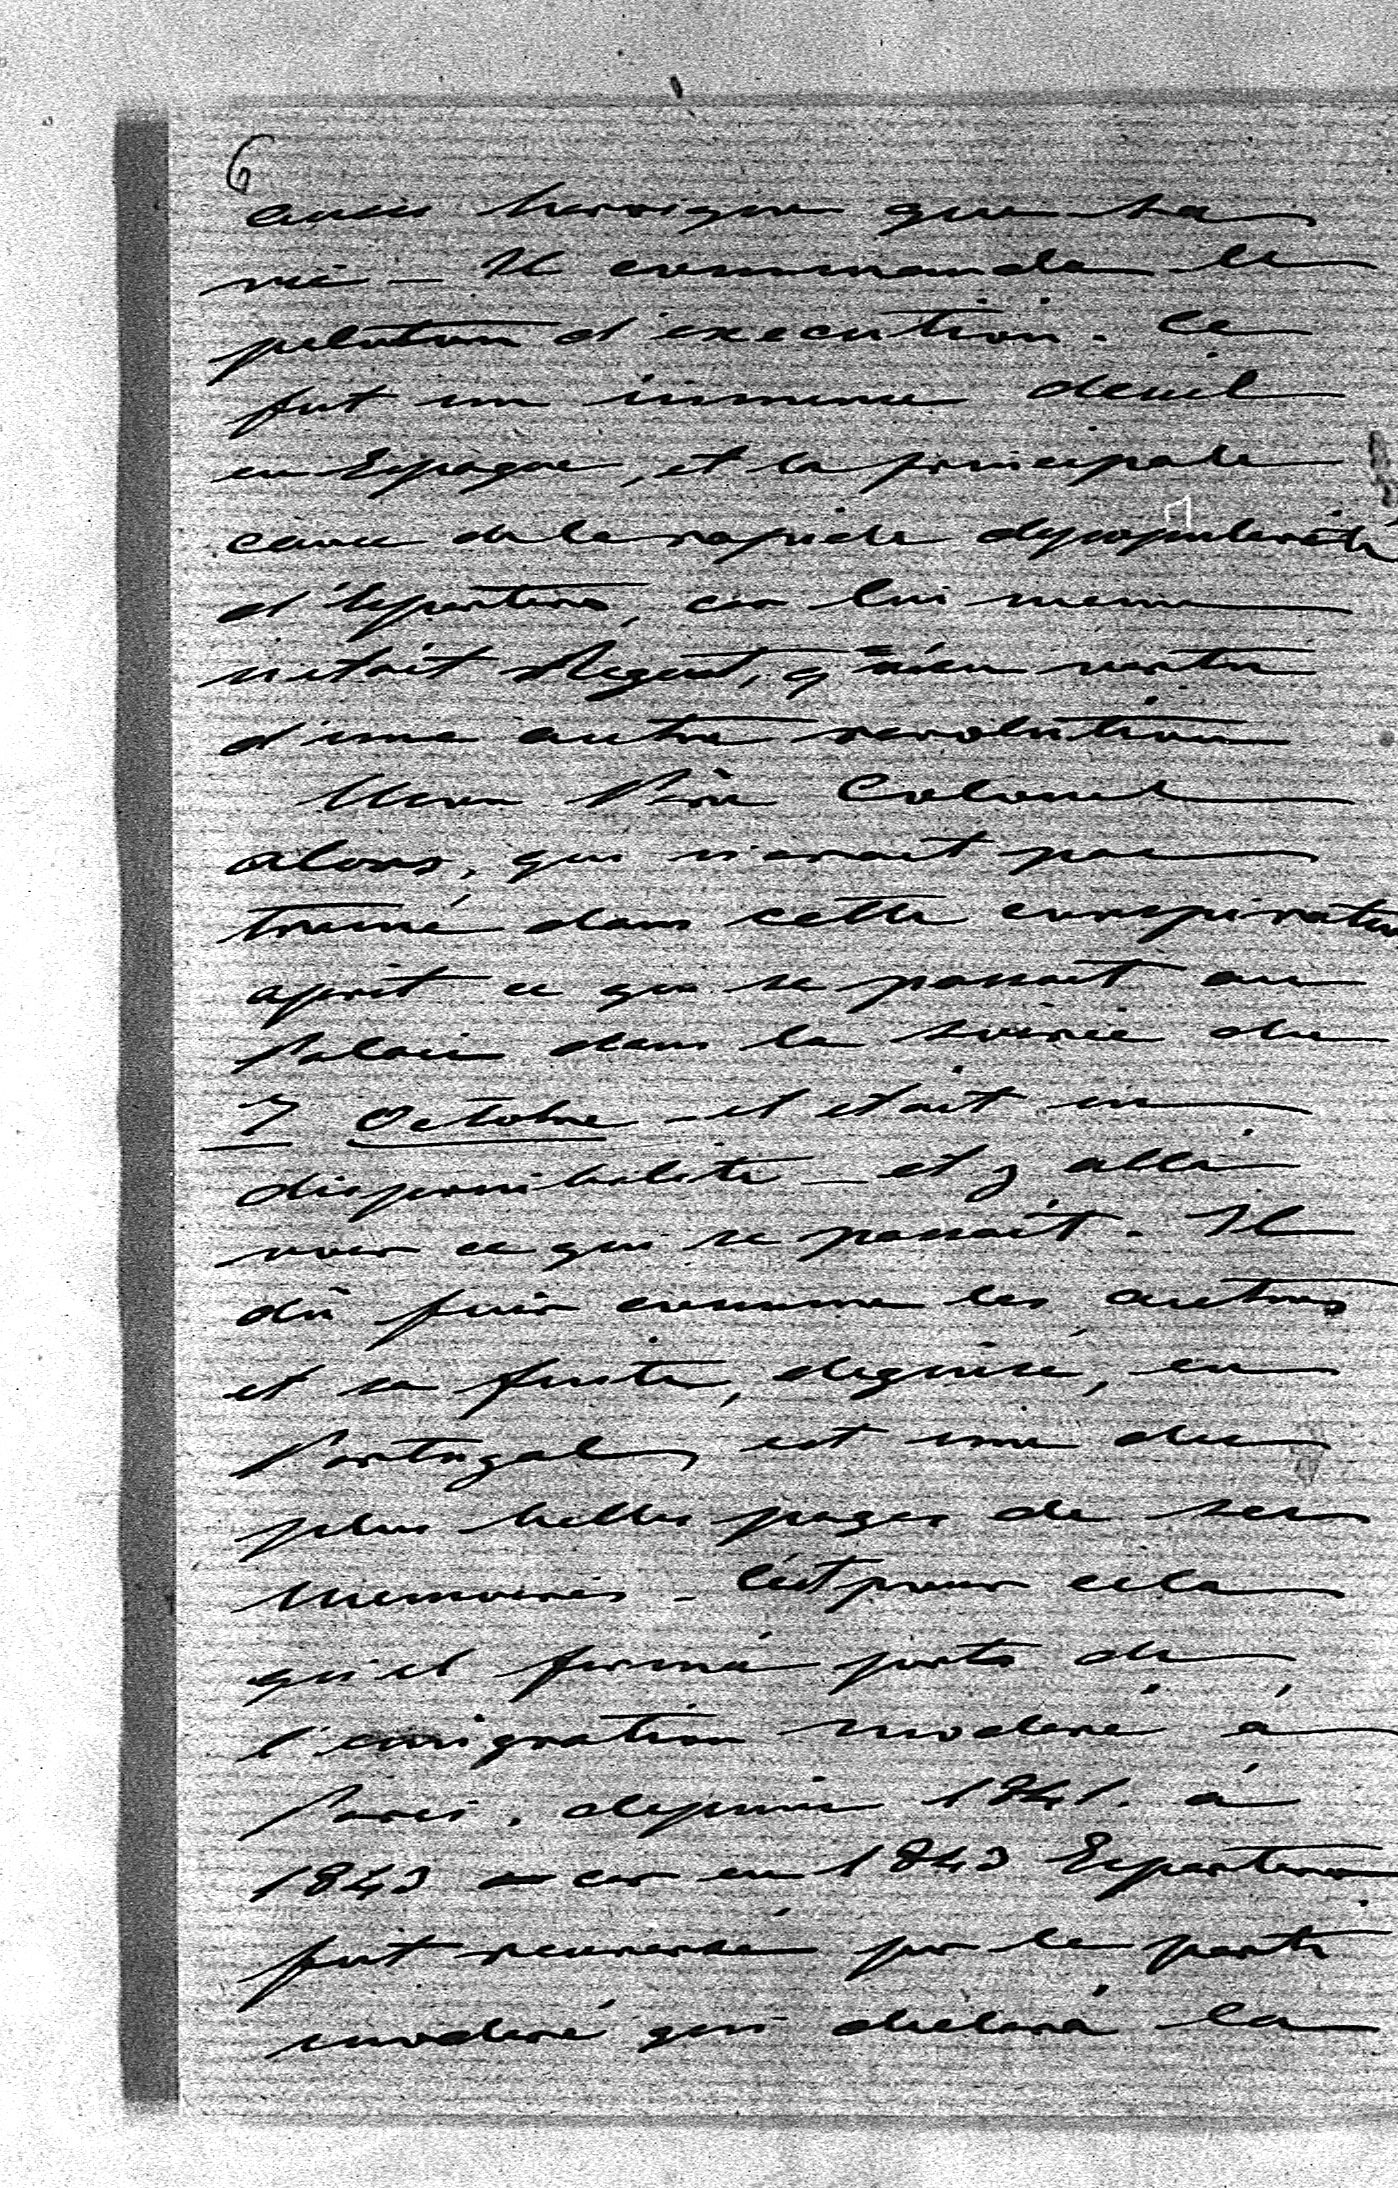 6
aussi heroique que sa
vie – Il commanda le
peloton d'execution. Ce
fut un immense deuil
en Espagne, et la principale
cause de la rapide dépopularité
d'Espartero, car lui meme
n'etait Regent, q'en vertu
d'une autre revolution
Mon Père Colonel
alors, qui n'avait pas
tramé dans cette conspiration
aprit ce que se passait au
Palais dans la soirée du
7 Octobre – il etait en
disponibilité – et y alla
voir ce qui se passait. Il
dû fuir comme les autres
et sa fuite, deguisé, en
Portugal, est une des
plus belles pages de ses
Memoires – C'est pour cela
qu'il forma parte de
l'emigration moderé à
Paris, depuis 1841. à
1843 – car en 1843 Espartero
fut renversé par le parti
moderé qui declara la